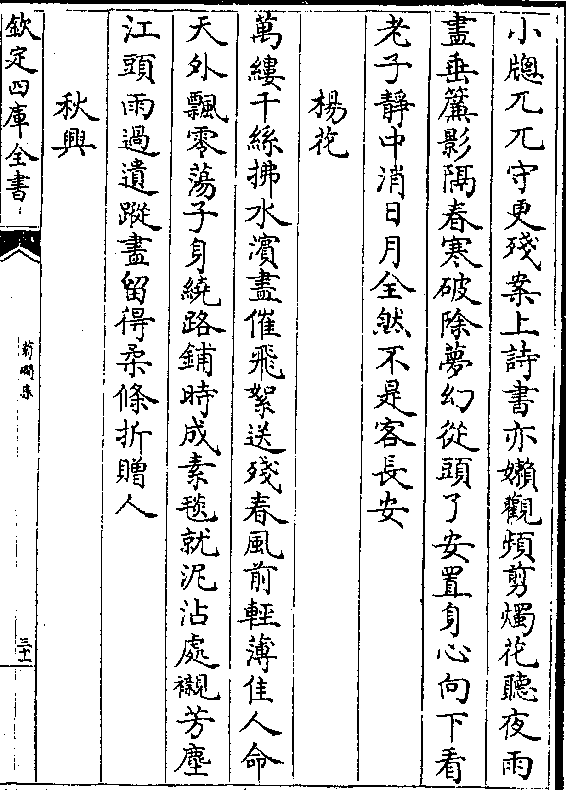 小牕兀兀守更殘案上詩書亦嬾觀頻剪燭花聽夜雨
盡垂簾影隔春寒破除夢幻從頭了安置身心向下看
老子靜中消日月全然不是客長安
楊花
萬縷千絲拂水濵盡催飛絮送殘春風前輕薄佳人命
天外飄零蕩子身繞路鋪時成素毯就泥沾處襯芳塵
江頭雨過遺蹤盡留得柔條折贈人
秋興
欽定四庫全書
菊磵集